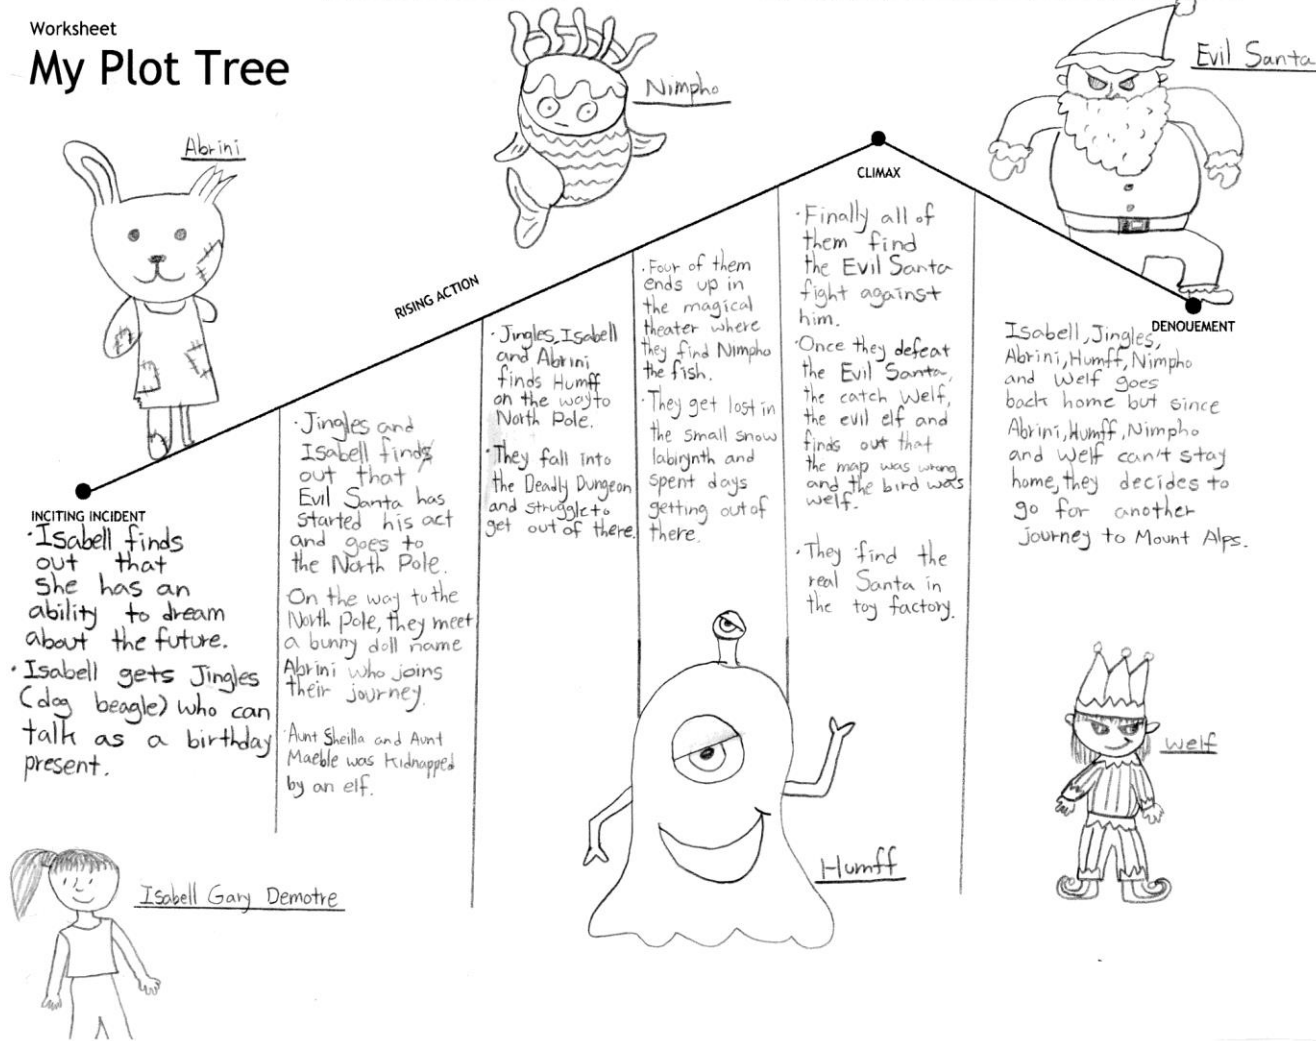 Worksheet
My Plot Tree
Abrini
Nimpho
Evil Santa
RISING ACTION
CLIMAX
DENOUEMENT
INCITING INCIDENT
·Isabell finds
out that
she has an
ability to dream
about the future.
·Isabell gets Jingles
(dog beagle) who can
talk as a birthday
present.
·Jingles and
Isabell finds
out that
Evil Santa has
started his act
and goes to
the North Pole.
On the way to the
North Pole, they meet
a bunny doll name
Abrini who joins
their journey.
·Aunt Sheilla and Aunt
Maeble was kidnapped
by an elf.
·Jingles, Isabell
and Abrini
finds Humff
on the way to
North Pole.
·They fall into
the Deadly Dungeon
and struggle to
get out of there.
·Four of them
ends up in
the magical
theater where
they find Nimpho
the fish.
·They get lost in
the small snow
labirynth and
spent days
getting out of
there.
·Finally all of
them find
the Evil Santa
fight against
him.
·Once they defeat
the Evil Santa,
the catch Welf,
the evil elf and
finds out that
the map was wrong
and the bird was
welf.
·They find the
real Santa in
the toy factory.
Isabell, Jingles,
Abrini, Humff, Nimpho
and Welf goes
back home but since
Abrini, Humff, Nimpho
and Welf can't stay
home, they decides to
go for another
journey to Mount Alps.
Isabell Gary Demotre
Humff
Welf